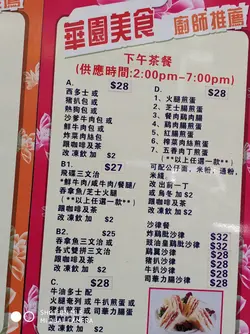 華園美食
廚師推薦
下午茶餐
(供應時間:2:00pm-7:00pm)
A. $28
西多士 或
豬扒包 或
熱狗包 或
沙爹牛肉包 或
鮮牛肉包 或
炸菜肉絲包
跟咖啡及茶
改凍飲加 $2
B1. $27
飛碟三文治
*鮮牛肉/咸牛肉/餐腿/
吞拿魚/芝士火腿
跟咖啡及茶
改凍飲 加 $2
B2. $25
吞拿魚三文治 或
各式雙拼三文治
跟咖啡及茶
改凍飲 加 $2
C. $28
牛油多士 配
跟咖啡及茶
改凍飲 加 $2
D. $28
1、火腿煎蛋
2、芝士腸煎蛋
3、餐肉鷄肉腸
4、鷄肉腸煎蛋
5、紅腸煎蛋
6、榨菜肉絲煎蛋
7、五香肉丁煎蛋
(**以上任選一款**)
可配公仔面，米粉，通粉，
米綫
改出前一丁
或 烏冬 加 $2
跟咖啡及茶
改凍飲 加 $2
沙律餐 $28
炸鷄肶沙律
豉油皇鷄肶沙律
鷄翼沙律
豬扒沙律
牛扒沙律
司華力腸沙律
(**以上任選一款**)
跟咖啡及茶
改凍飲 加 $2